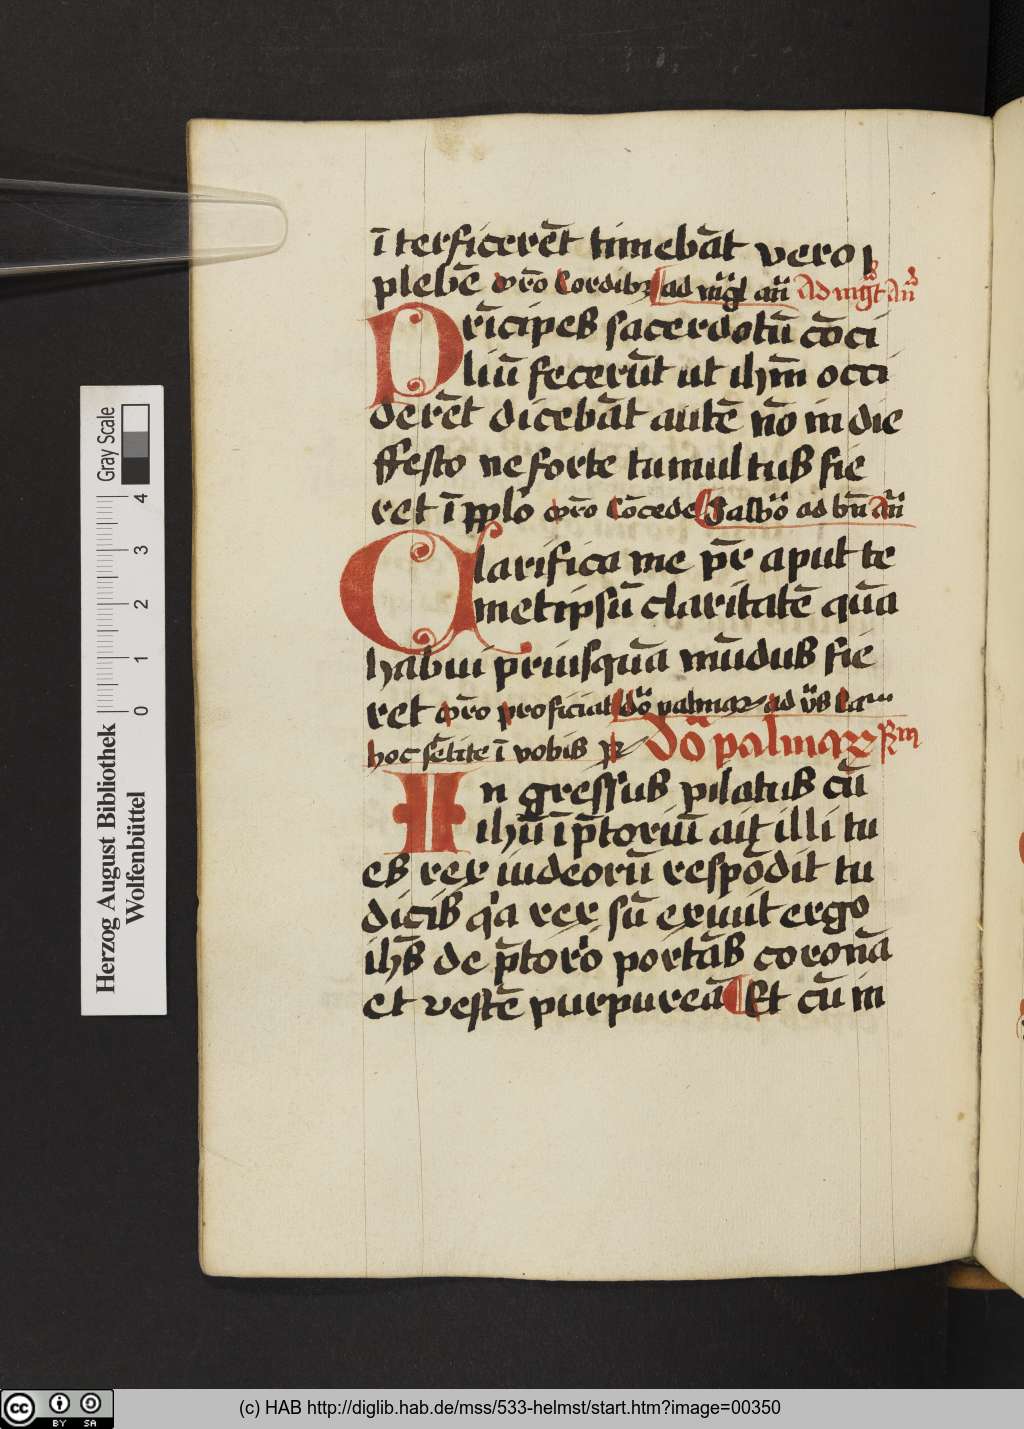 īterficerēt timebāt vero
plebē Cordibꝫ ad mgͣt an̄ Ad mgͣt An̄
Prīcipes sacerdotū cōci
liū fecerūt ut ihm̄ occi
derēt dicebāt autē nō in die
ffesto ne forte tumultus fie
ret ī pplō Cōcede Salbͦo ad bn̄ an̄
Clarifica me pr̄ aput te
metipsū claritatē quā
habui priusquā mūdus fie
ret proficiat dō palmaꝝ ad
hoc sētite ī vobis Dō palmaꝝ
In gressus pilatus cū
ihū ī p̄toriū ait illi tu
es rex iudeorū respōdit tu
dicis qa rex sū exiuit ergo
ihs̄ de p̄torio portās coronā
et vestē purpureā Et cū in
Herzog August Bibliothek
Wolfenbüttel
0 1 2 3 4
Gray Scale
BY SA
(c) HAB http://diglib.hab.de/mss/533-helmst/start.htm?image=00350